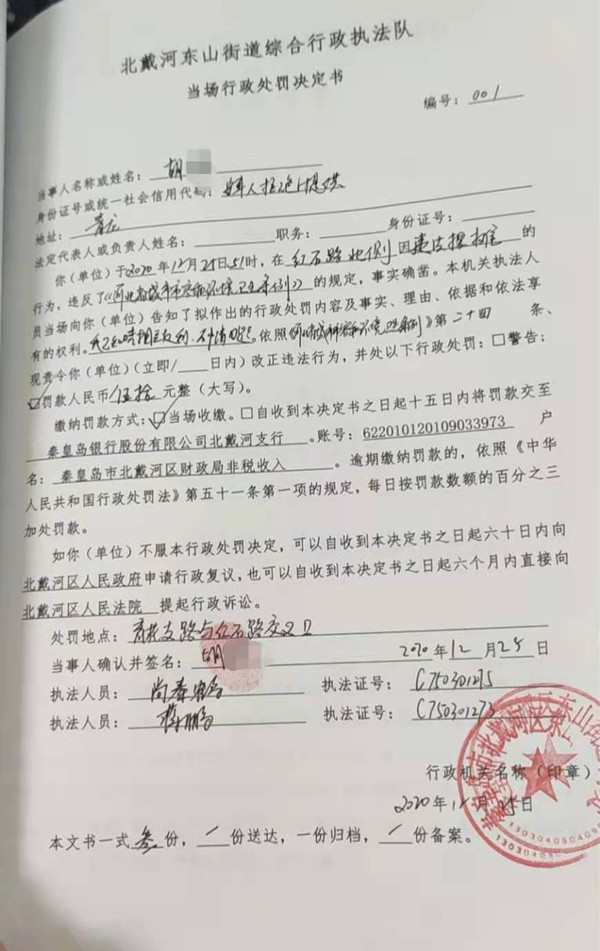 北戴河东山街道综合行政执法队
当场行政处罚决定书
编号：001
当事人名称或姓名：胡
身份证号或统一社会信用代码：当事人拒绝提供
地址：青龙
法定代表人或负责人姓名： 职务： 身份证号：
你（单位）于2020年12月25日 时，在红石路北侧因违法摆摊的
行为，违反了《河北省城市市容和环境卫生条例》的规定，事实确凿。本机关执法人
员当场向你（单位）告知了拟作出的行政处罚内容及事实、理由、依据和依法享
有的权利。 依照《 条例》第二十四条、
现责令你（单位）（立即/ 日内）改正违法行为，并处以下行政处罚：□警告；
☑罚款人民币伍拾元整（大写）。
缴纳罚款方式：☑当场收缴。□自收到本决定书之日起十五日内将罚款交至
秦皇岛银行股份有限公司北戴河支行。账号：622010120109033973 户
名：秦皇岛市北戴河区财政局非税收入。逾期缴纳罚款的，依照《中华
人民共和国行政处罚法》第五十一条第一项的规定，每日按罚款数额的百分之三
加处罚款。
如你（单位）不服本行政处罚决定，可以自收到本决定书之日起六十日内向
北戴河区人民政府申请行政复议，也可以自收到本决定书之日起六个月内直接向
北戴河区人民法院 提起行政诉讼。
处罚地点： 支路与红石路交叉口
当事人确认并签名：胡 2020年12月25日
执法人员：尚春 执法证号：C750301275
执法人员： 鹏 执法证号：C750301273
行政机关名称（印章）
2020年12月25日
本文书一式叁份，一份送达，一份归档，一份备案。